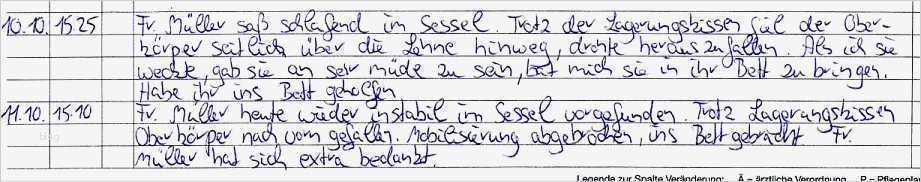 10.10. 15.25 Fr. Müller saß schlafend im Sessel Trotz der Lagerungskissen fiel der Ober-
körper seitlich über die Lehne hinweg, drohte herauszufallen. Als ich sie
weckte, gab sie an sehr müde zu sein, bat mich sie in ihr Bett zu bringen.
Habe ihr ins Bett geholfen
11.10. 15.10 Fr. Müller heute wieder instabil im Sessel vorgefunden. Trotz Lagerungskissen
Oberhörper nach vorn gefallen. Mobilisierung abgebrochen, ins Bett gebracht Fr.
Müller hat sich extra bedankt.
Legende zur Spalte Veränderung: Ä = ärztliche Verordnung P = Pflegeplan